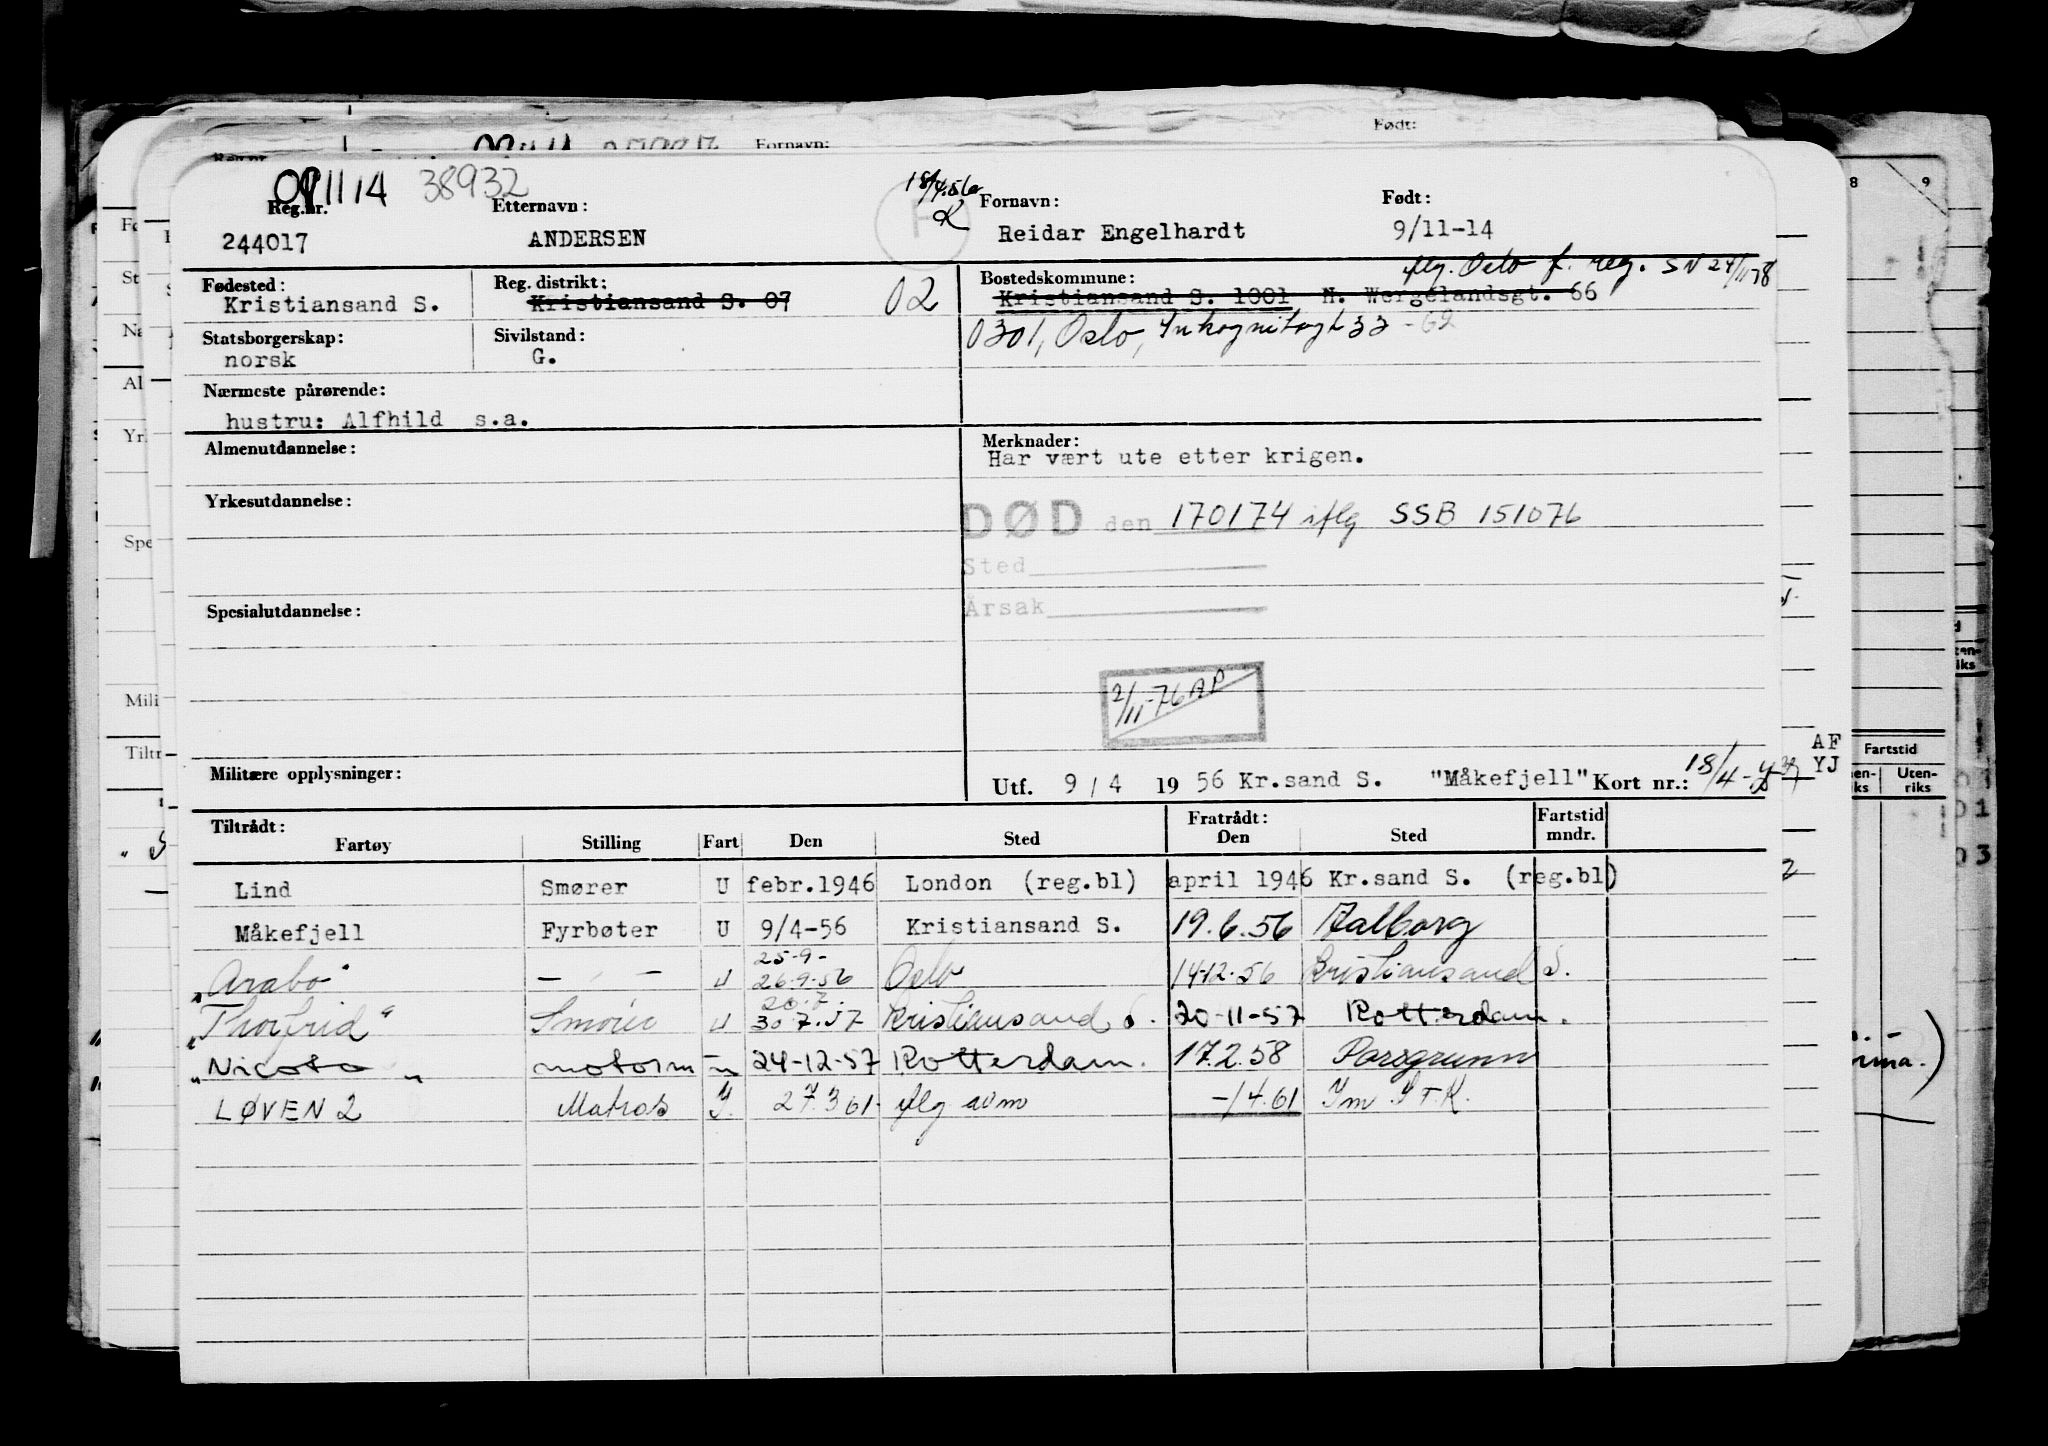 Født:
Fornavn:
091114 38932
18/4.56
K
Reg.nr. Etternavn: Fornavn: Født:
244017 ANDERSEN Reidar Engelhardt 9/11-14
iflg. Oslo f. reg. SN 24/11-78
Fødested: Reg. distrikt: Bostedskommune:
Kristiansand S. Kristiansand S. 07 02 Kristiansand S. 1001 H. Wergelandsgt. 66
0301, Oslo, Inkognitogt 33 -62
Statsborgerskap: Sivilstand:
norsk G.
Nærmeste pårørende:
hustru: Alfhild s.a.
Almenutdannelse: Merknader:
Har vært ute etter krigen.
Yrkesutdannelse:
DØD den 170174 iflg SSB 151076
Sted
Årsak
Spesialutdannelse:
2/11-76 AP
Militære opplysninger:
Utf. 9/4 1956 Kr.sand S. "Måkefjell" Kort nr.: 18/4-
Tiltrådt: Fratrådt: Fartstid
Fartøy Stilling Fart Den Sted Den Sted mndr.
Lind Smører U febr.1946 London (reg.bl) april 1946 Kr.sand S. (reg.bl)
Måkefjell Fyrbøter U 9/4-56 Kristiansand S. 19.6.56 Aalborg
25.9-
"Arabo" — " — U 26.9.56 Oslo 14-12-56 Kristiansand S.
20.7.
"Thorfrid" Smører U 30.7.57 Kristiansand S. 20-11-57 Rotterdam.
"Nicoto" motorm -"- 24-12-57 Rotterdam. 17.2.58 Porsgrunn
LØVEN 2 Matros I. 27.3 61. iflg avm -/4.61 Im. S.T.K.
8 9
AF
YJ
Fartstid
Uten-
riks